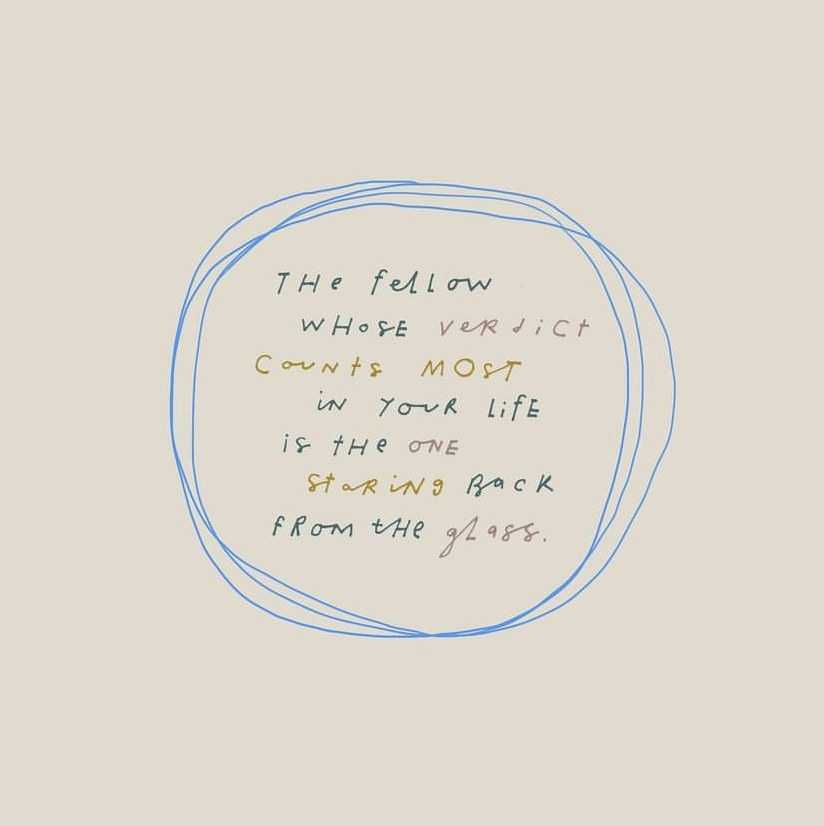 THe fellow
WHosE veRdiCt
CouNts MOST
iN YouR lifE
is tHe ONE
StaRiNg BacK
fRom tHe glass.